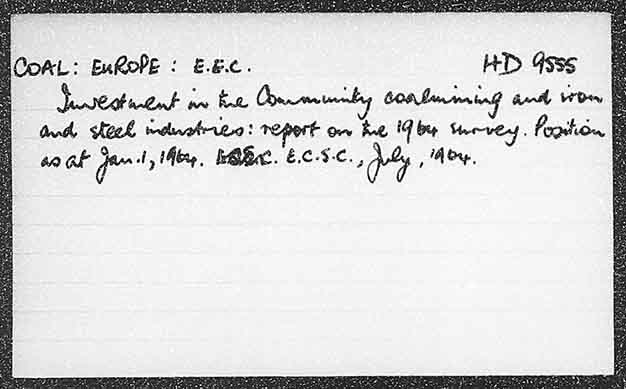 COAL: EUROPE: E.E.C. HD 9555
Investment in the Community coalmining and iron
and steel industries: report on the 1964 survey. Position
as at Jan. 1, 1964. E.C.S.C., July, 1964.